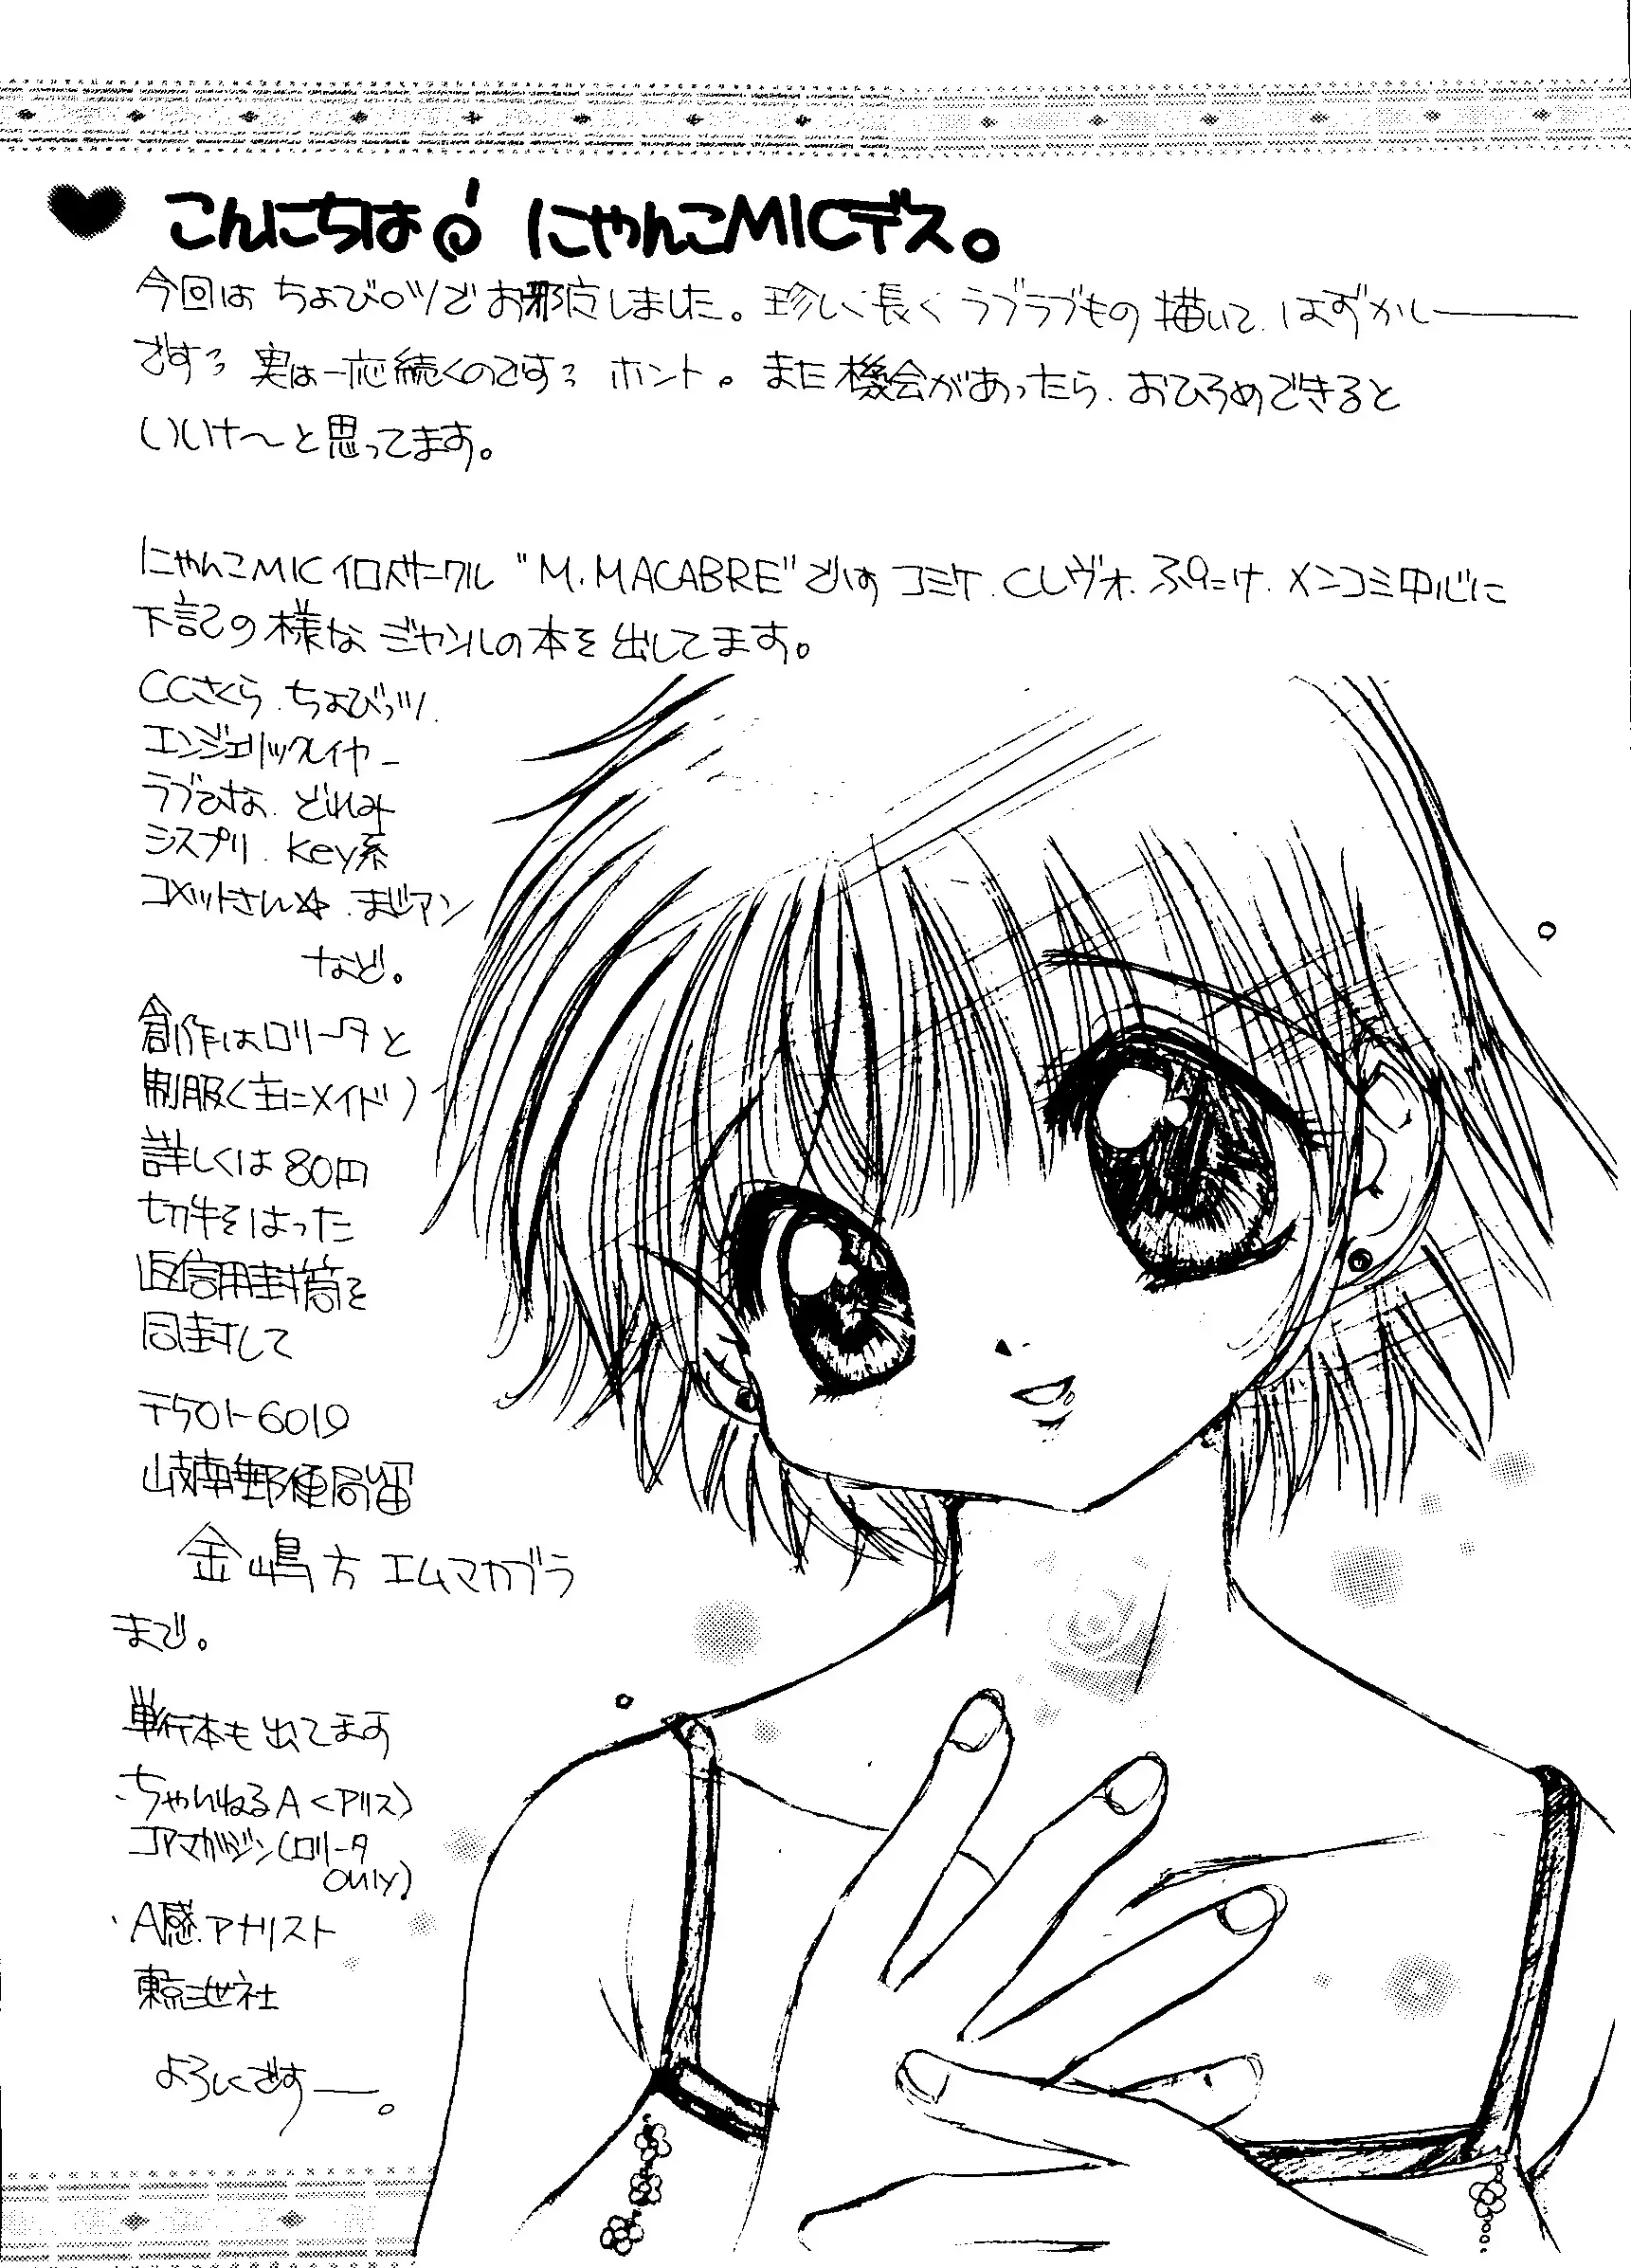 こんにちは にゃんこMICデス。
今回は ちょびッツで お邪广しました。珍しく長く ラブラブもの 描いて、はずかしー
です 実は一応続くのです ホント。また機会があったら、おひろめできると
いいけ〜と思ってます。
にゃんこMIC サークル "M.MACABRE" です コミケ、Cレヴォ、ぷにけ、メンコミ中心に
下記の様な ジャンルの本を出してます。
CCさくら、ちょびッツ、
エンジェリックレイヤー
ラブひな、どれみ
シスプリ、Key系
コメットさん☆、まじアン
など。
創作はロリータと
制服(主にメイド)
詳しくは80円
切手をはった
返信用封筒を
同封して
〒501-6019
岐南郵便局留
金嶋方 エムマカブラ
まで。
単行本も出てます
・ちゃんねるA<アリス>
コアマガジン(ロリータ
only)
・A感、アナリスト
東京三世社
よろしくですー。